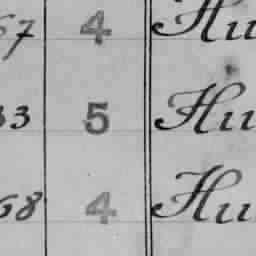 57 4 Hu
33 5 Hu
68 4 Hu